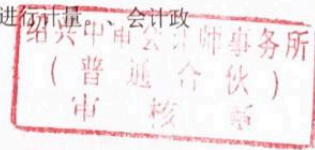 进行计量。、会计政
绍兴中审会计师事务所
(普通合伙)
审核章